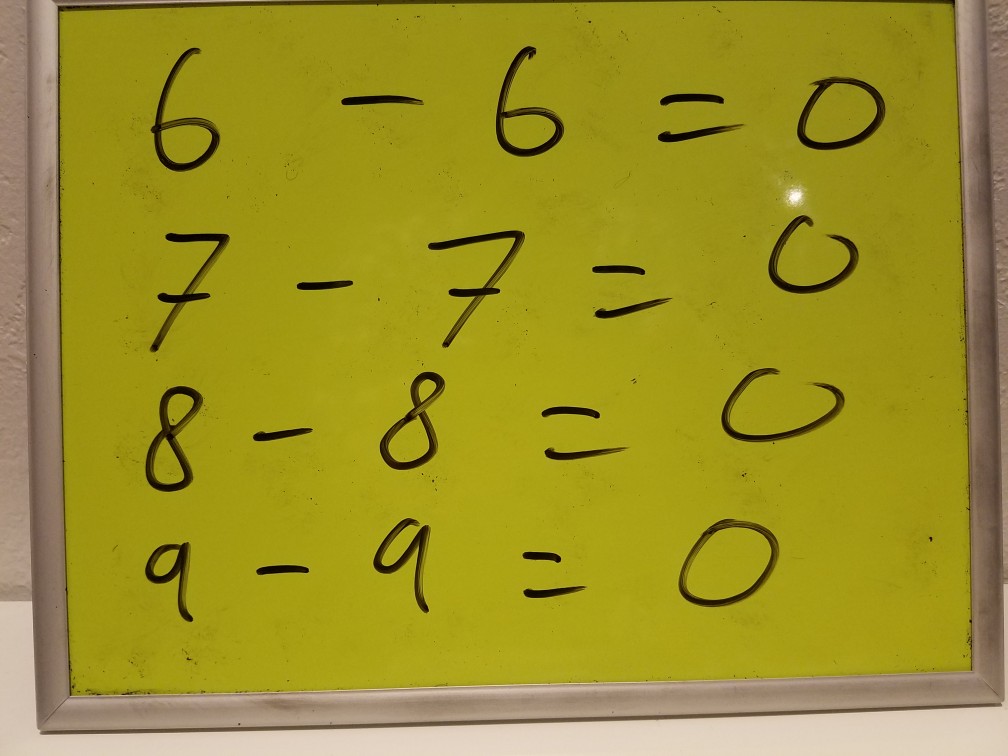 6 - 6 = 0
7 - 7 = 0
8 - 8 = 0
9 - 9 = 0